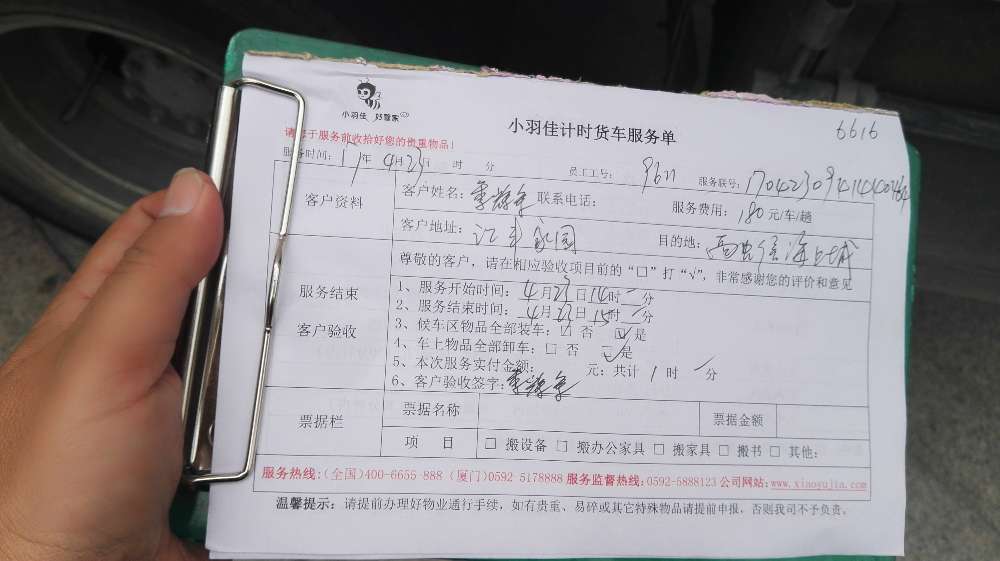 小羽佳 好管家
小羽佳计时货车服务单
6616
请您于服务前收拾好您的贵重物品！
服务时间：17年 4月23日 时 分 员工工号：9611 服务联号：
客户资料 客户姓名： 联系电话： 服务费用：180元/车/趟
客户地址： 家园 目的地：
服务结束
客户验收
尊敬的客户，请在相应验收项目前的“□”打“√”，非常感谢您的评价和意见
1、服务开始时间：4月23日14时 分
2、服务结束时间：4月23日15时 分
3、候车区物品全部装车：☑ 否 ☑是
4、车上物品全部卸车：□ 否 ☑是
5、本次服务实付金额： 元；共计 1 时 分
6、客户验收签字：
票据栏 票据名称 票据金额
项 目 □ 搬设备 □ 搬办公家具 □ 搬家具 □ 搬书 □ 其他：
服务热线：（全国）400-6655-888（厦门）0592-5178888 服务监督热线：0592-5888123 公司网站：www.xiaoyujia.com
温馨提示：请提前办理好物业通行手续，如有贵重、易碎或其它特殊物品请提前申报，否则我司不予负责。